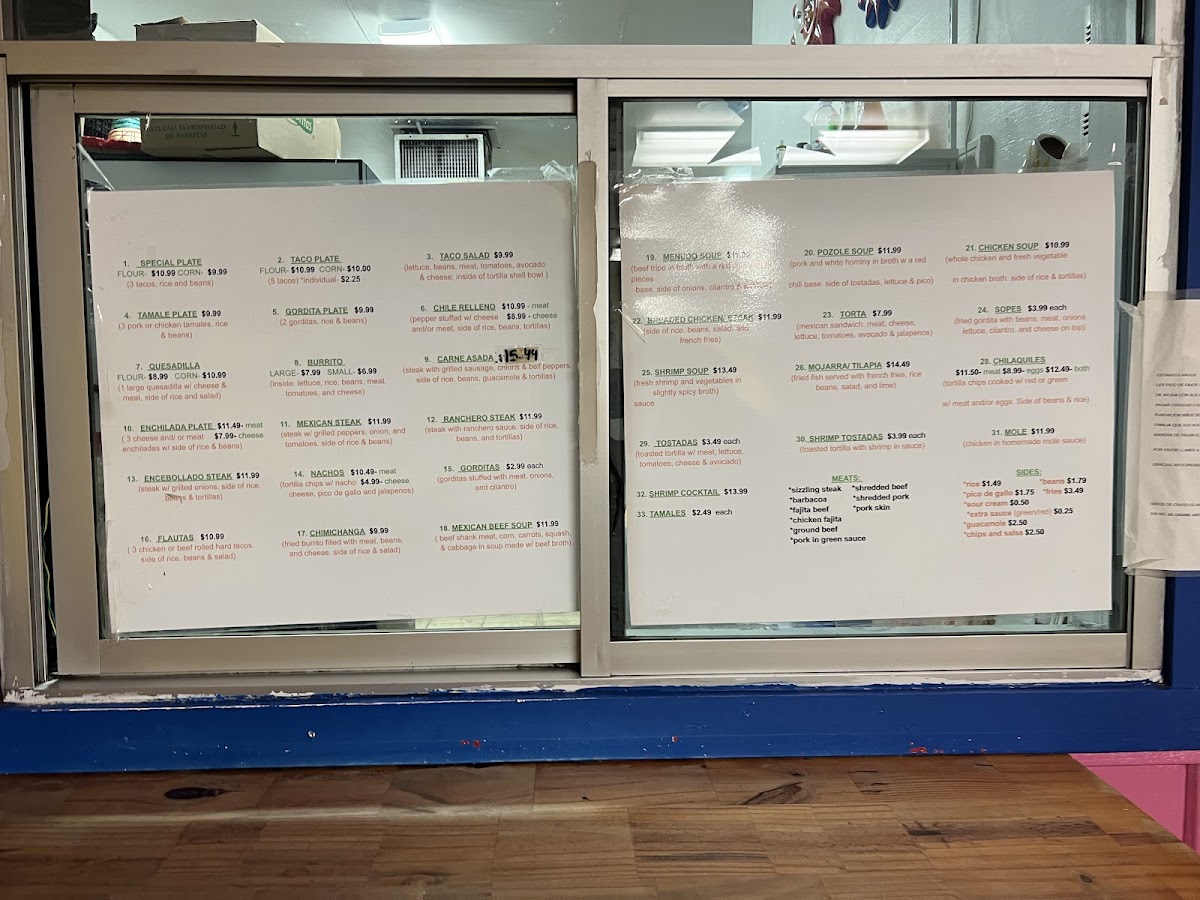 ESTA CAJA ES PROPIEDAD
DE SABRITAS
1. SPECIAL PLATE
FLOUR- $10.99 CORN- $9.99
(3 tacos, rice and beans)
2. TACO PLATE
FLOUR- $10.99 CORN- $10.00
(5 tacos) *individual- $2.25
3. TACO SALAD $9.99
(lettuce, beans, meat, tomatoes, avocado
& cheese; inside of tortilla shell bowl )
4. TAMALE PLATE $9.99
(3 pork or chicken tamales, rice
& beans)
5. GORDITA PLATE $9.99
(2 gorditas, rice & beans)
6. CHILE RELLENO $10.99 - meat
(pepper stuffed w/ cheese $8.99 - cheese
and/or meat, side of rice, beans, tortillas)
7. QUESADILLA
FLOUR- $8.99 CORN- $10.99
(1 large quesadilla w/ cheese &
meat, side of rice and salad)
8. BURRITO
LARGE- $7.99 SMALL- $6.99
(inside: lettuce, rice, beans, meat,
tomatoes, and cheese)
9. CARNE ASADA $15.49
(steak with grilled sausage, onions & bell peppers.
side of rice, beans, guacamole & tortillas)
10. ENCHILADA PLATE $11.49- meat
( 3 cheese and/ or meat $7.99- cheese
enchiladas w/ side of rice & beans)
11. MEXICAN STEAK $11.99
(steak w/ grilled peppers, onion, and
tomatoes. side of rice & beans)
12. RANCHERO STEAK $11.99
(steak with ranchero sauce. side of rice,
beans, and tortillas)
13. ENCEBOLLADO STEAK $11.99
(steak w/ grilled onions. side of rice,
beans & tortillas)
14. NACHOS $10.49- meat
(tortilla chips w/ nacho $4.99- cheese
cheese, pico de gallo and jalapenos)
15. GORDITAS $2.99 each
(gorditas stuffed with meat, onions,
and cilantro)
16. FLAUTAS $10.99
( 3 chicken or beef rolled hard tacos.
side of rice, beans & salad)
17. CHIMICHANGA $9.99
(fried burrito filled with meat, beans,
and cheese. side of rice & salad)
18. MEXICAN BEEF SOUP $11.99
( beef shank meat, corn, carrots, squash,
& cabbage in soup made w/ beef broth)
19. MENUDO SOUP
(beef tripe in broth with a red
pieces
base. side of onions, cilantro &
20. POZOLE SOUP $11.99
(pork and white hominy in broth w a red
chili base. side of tostadas, lettuce & pico)
21. CHICKEN SOUP $10.99
(whole chicken and fresh vegetable
in chicken broth. side of rice & tortillas)
22. BREADED CHICKEN/ STEAK $11.99
(side of rice, beans, salad, and
french fries)
23. TORTA $7.99
(mexican sandwich: meat, cheese,
lettuce, tomatoes, avocado & jalapenos)
24. SOPES $3.99 each
(fried gordita with beans, meat, onions
lettuce, cilantro, and cheese on top)
25. SHRIMP SOUP $13.49
(fresh shrimp and vegetables in
slightly spicy broth)
sauce
26. MOJARRA/ TILAPIA $14.49
(fried fish served with french fries, rice
beans, salad, and lime)
28. CHILAQUILES
$11.50- meat $8.99- eggs $12.49- both
(tortilla chips cooked w/ red or green
w/ meat and/or eggs. Side of beans & rice)
29. TOSTADAS $3.49 each
(toasted tortilla w/ meat, lettuce,
tomatoes, cheese & avocado)
30. SHRIMP TOSTADAS $3.99 each
(toasted tortilla with shrimp in sauce)
31. MOLE $11.99
(chicken in homemade mole sauce)
32. SHRIMP COCKTAIL $13.99
33. TAMALES $2.49 each
MEATS:
*sizzling steak *shredded beef
*barbacoa *shredded pork
*fajita beef *pork skin
*chicken fajita
*ground beef
*pork in green sauce
SIDES:
*rice $1.49 *beans $1.79
*pico de gallo $1.75 *fries $3.49
*sour cream $0.50
*extra sauce (green/red) $0.25
*guacamole $2.50
*chips and salsa $2.50